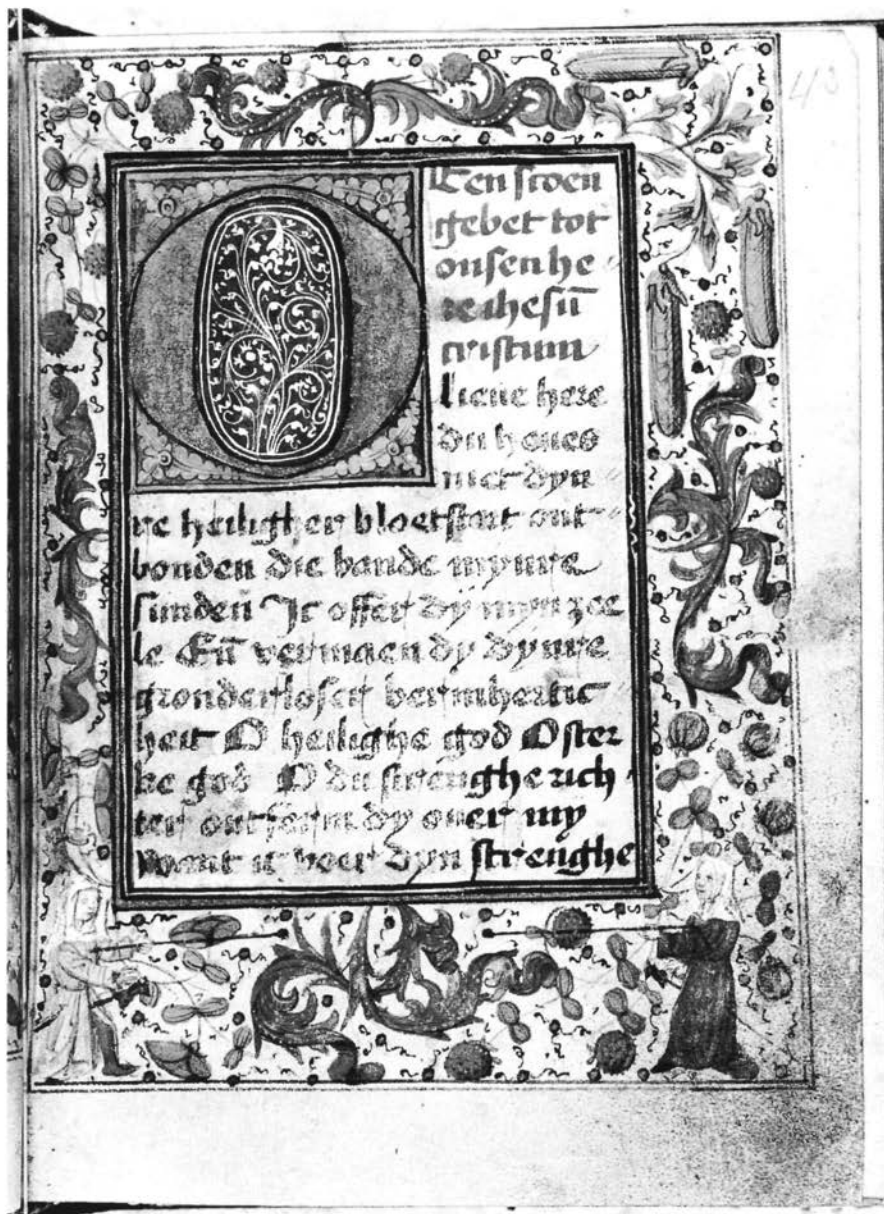 43
Een scoen
gebet tot
onsen he
re ihesū
cristum
O lieue here
du heues
mit dyn
re heiligher bloetstat ont
bonden die bande mynre
sunden Ic offer dy myn zee
le Eñ vermaen dy dynre
gronderloser bermhertic
heit O heilighe god O ster
ke god O du strenghe rich
ter ontferm dy ouer my
Want ic voer dyn strenghe